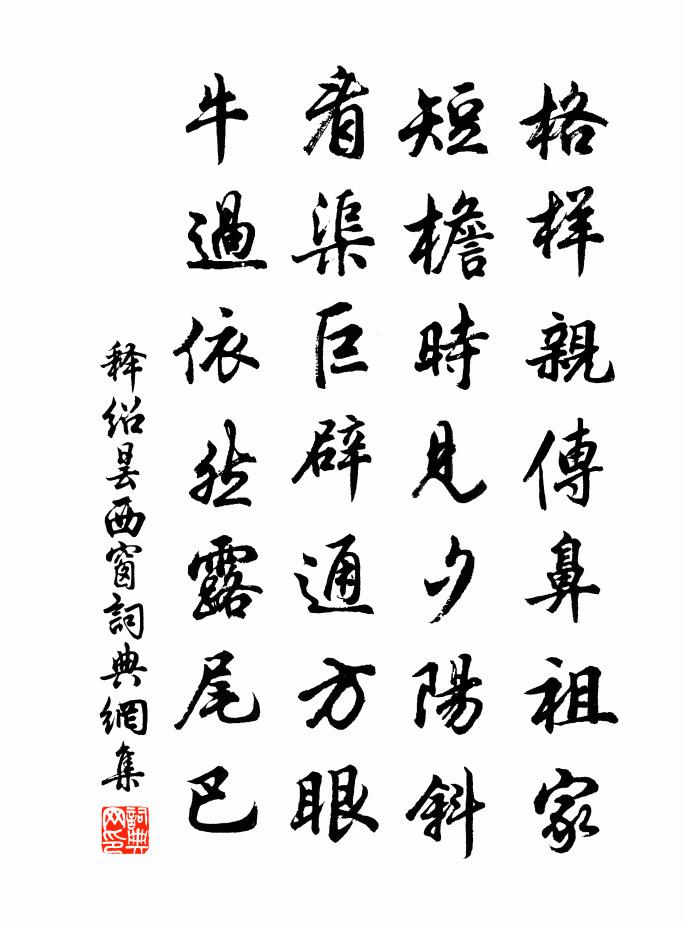 格样親傳鼻祖家
短檐時見夕陽斜
看渠巨辟通方眼
牛過依然露尾巴
释绍昙西窗詞典網集
詞典网印